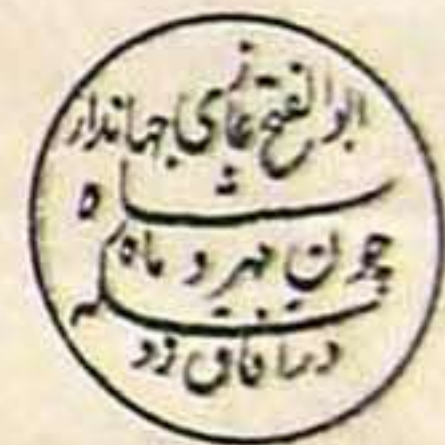 ابوالفتح غازی جهاندار
شاه
چون مهر و ماه
سکه
در افاق زد